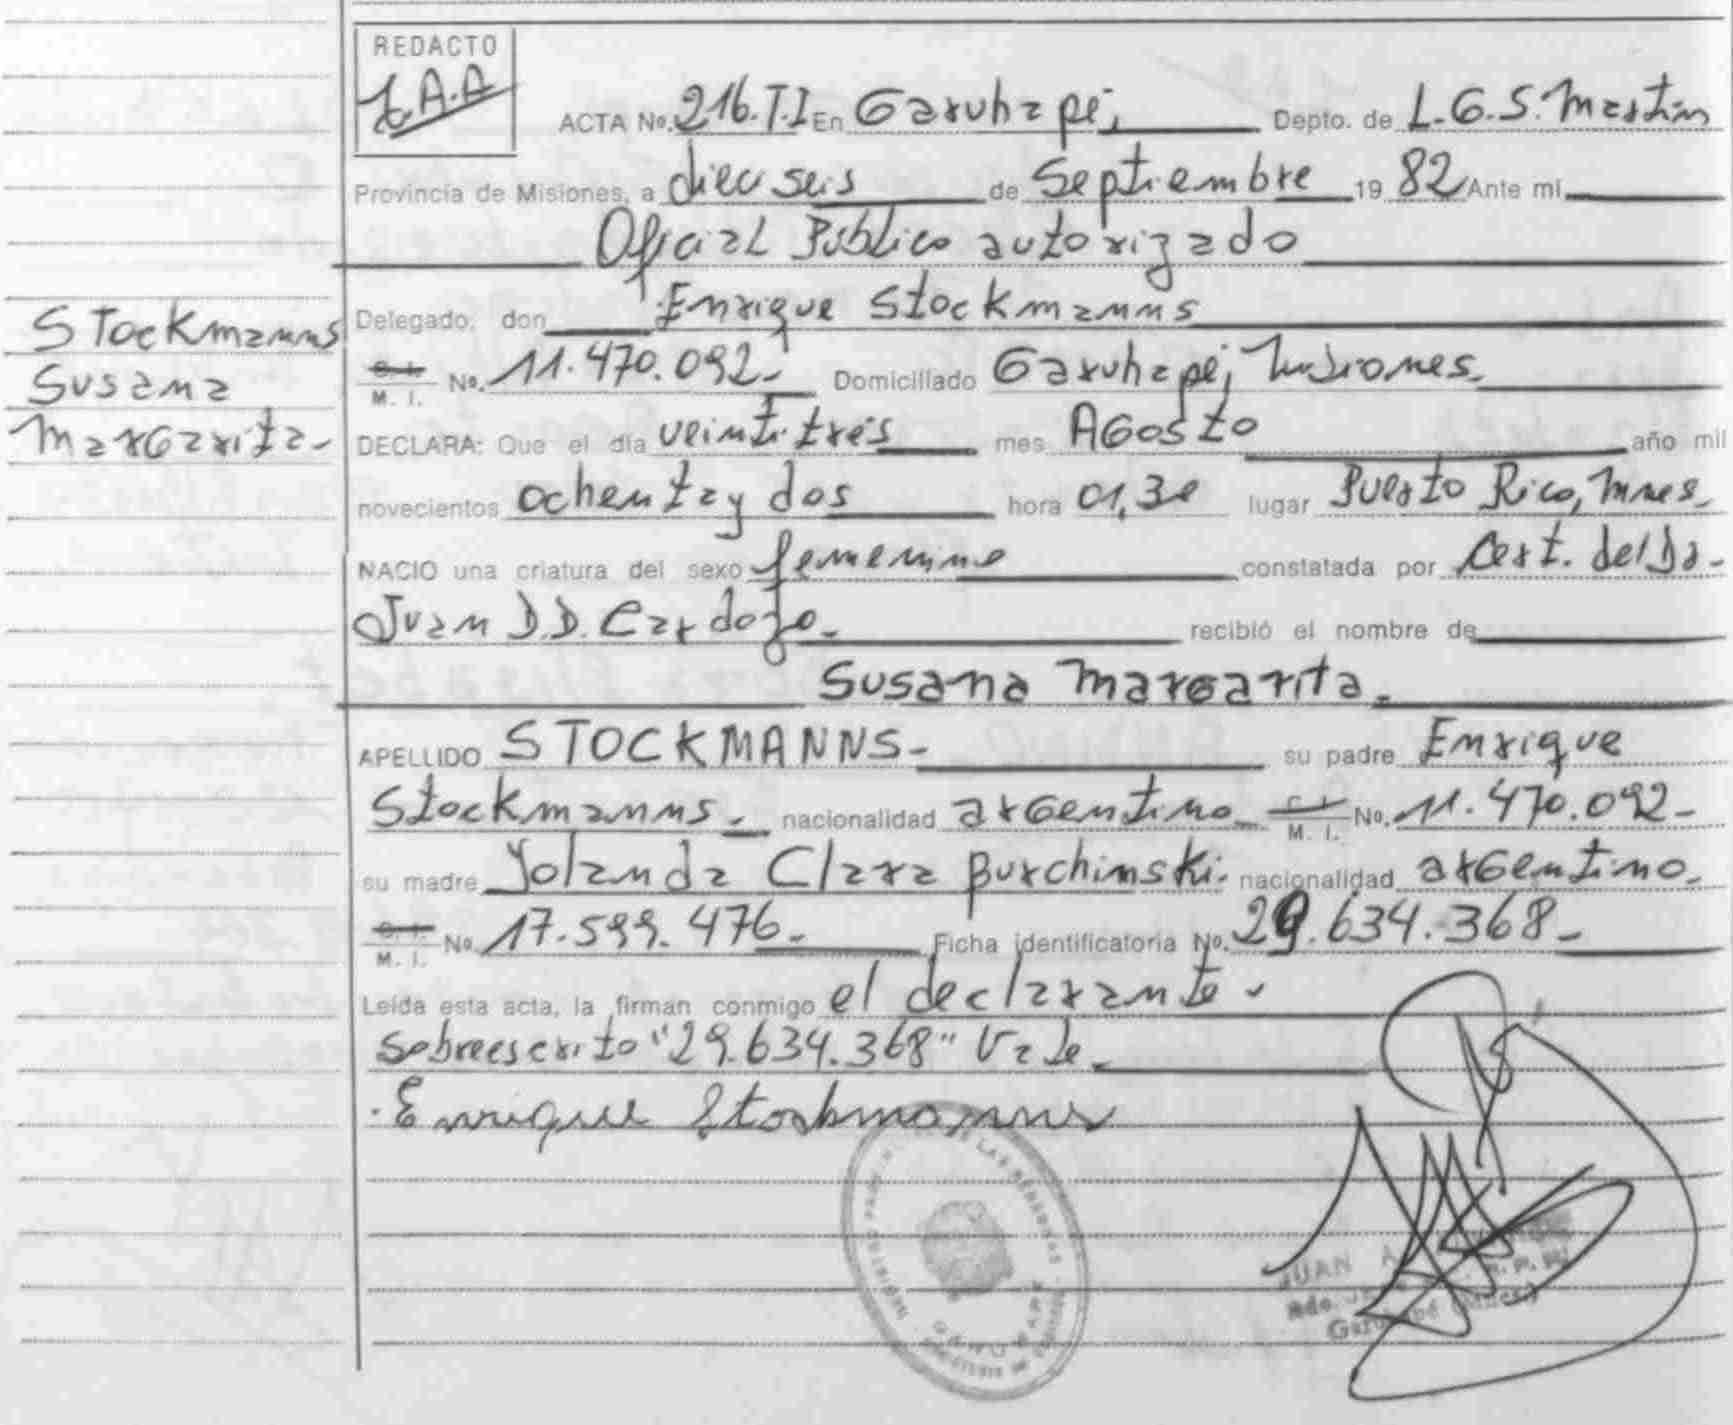 REDACTO
J.A.A
ACTA No. 216.T.I En Garuhapé, Depto. de L.G.S. Martín
Provincia de Misiones, a dieciseis de Septiembre 19 82 Ante mi
Oficial Público autorizado
Delegado, don Enrique Stockmanns
Stockmanns
Susana
Margarita-
C. I. M. I. No. 11.470.092- Domiciliado Garuhapé, Misiones.
DECLARA: Que el día veintitrés mes AGosto año mil
novecientos ochenta y dos hora 01,30 lugar Puerto Rico, Mnes.
NACIO una criatura del sexo femenino constatada por Cert. del Dr.
Juan D.D. Cardozo- recibió el nombre de
Susana Margarita-
APELLIDO STOCKMANNS- su padre Enrique
Stockmanns- nacionalidad argentino C. I. M. I. No. 11.470.092-
su madre Yolanda Clara Burchinski. nacionalidad argentino-
C. I. M. I. No. 17.599.476- Ficha identificatoria No. 29.634.368-
Leída esta acta, la firman conmigo el declarante-
Sobreescrito "29.634.368" Vale-
Enrique Stockmanns
JUAN A.
Garuhapé (Mnes.)